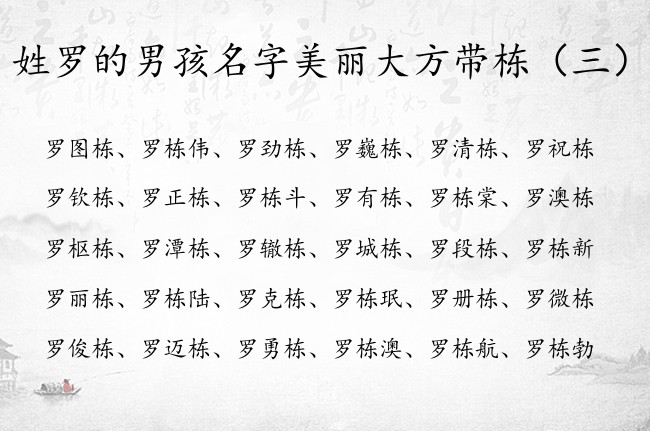 姓罗的男孩名字美丽大方带栋（三）
罗图栋、罗栋伟、罗劲栋、罗巍栋、罗清栋、罗祝栋
罗钦栋、罗正栋、罗栋斗、罗有栋、罗栋棠、罗澳栋
罗枢栋、罗潭栋、罗辙栋、罗城栋、罗段栋、罗栋新
罗丽栋、罗栋陆、罗克栋、罗栋珉、罗册栋、罗微栋
罗俊栋、罗迈栋、罗勇栋、罗栋澳、罗栋航、罗栋勃